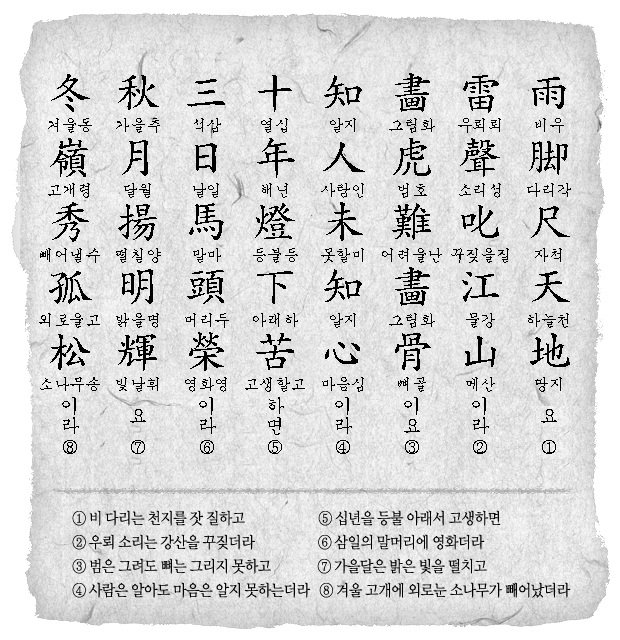 雨 비우 脚 다리각 尺 자척 天 하늘천 地 땅지 요 ①
雷 우뢰뢰 聲 소리성 叱 꾸짖을질 江 물강 山 메산 이라 ②
畫 그림화 虎 범호 難 어려울난 畫 그림화 骨 뼈골 이요 ③
知 알지 人 사람인 未 못할미 知 알지 心 마음심 이라 ④
十 열십 年 해년 燈 등불등 下 아래하 苦 고생할고 하면 ⑤
三 석삼 日 날일 馬 말마 頭 머리두 榮 영화영 이라 ⑥
秋 가을추 月 달월 揚 떨칠양 明 밝을명 輝 빛날휘 요 ⑦
冬 겨울동 嶺 고개령 秀 빼어낼수 孤 외로울고 松 소나무송 이라 ⑧
① 비 다리는 천지를 잣 질하고
② 우뢰 소리는 강산을 꾸짖더라
③ 범은 그려도 뼈는 그리지 못하고
④ 사람은 알아도 마음은 알지 못하는더라
⑤ 십년을 등불 아래서 고생하면
⑥ 삼일의 말머리에 영화더라
⑦ 가을달은 밝은 빛을 떨치고
⑧ 겨울 고개에 외로눈 소나무가 빼어났더라